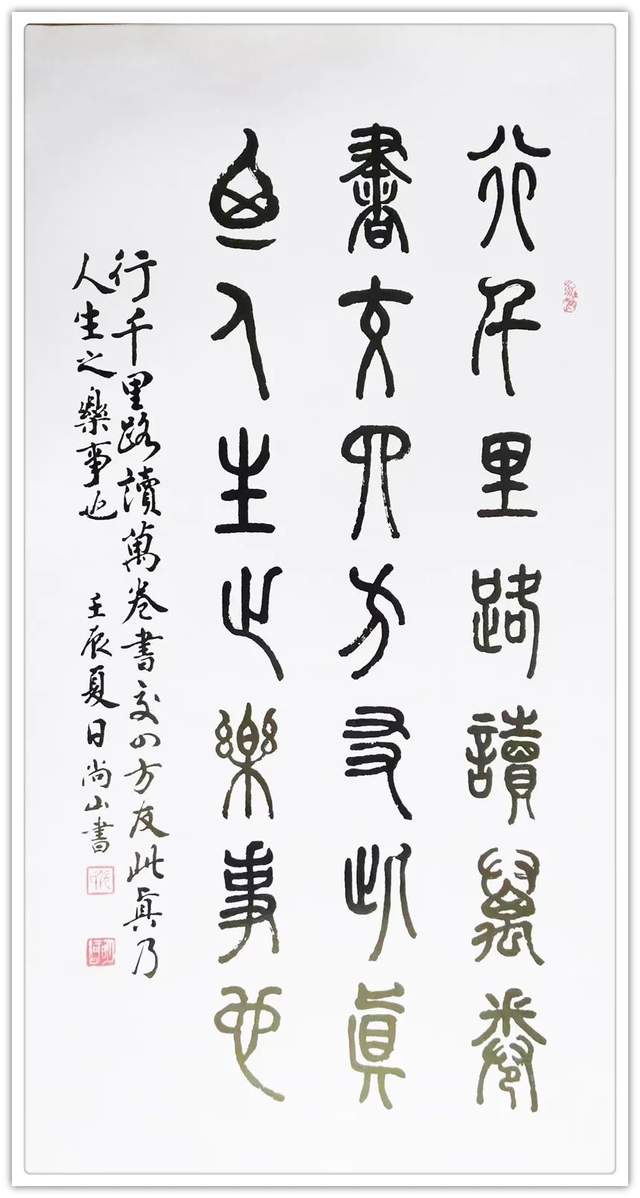 行千里路讀萬卷
書交四方友此眞
乃人生之樂事也
行千里路讀萬卷書交四方友此真乃
人生之樂事也 壬辰夏日尚山書